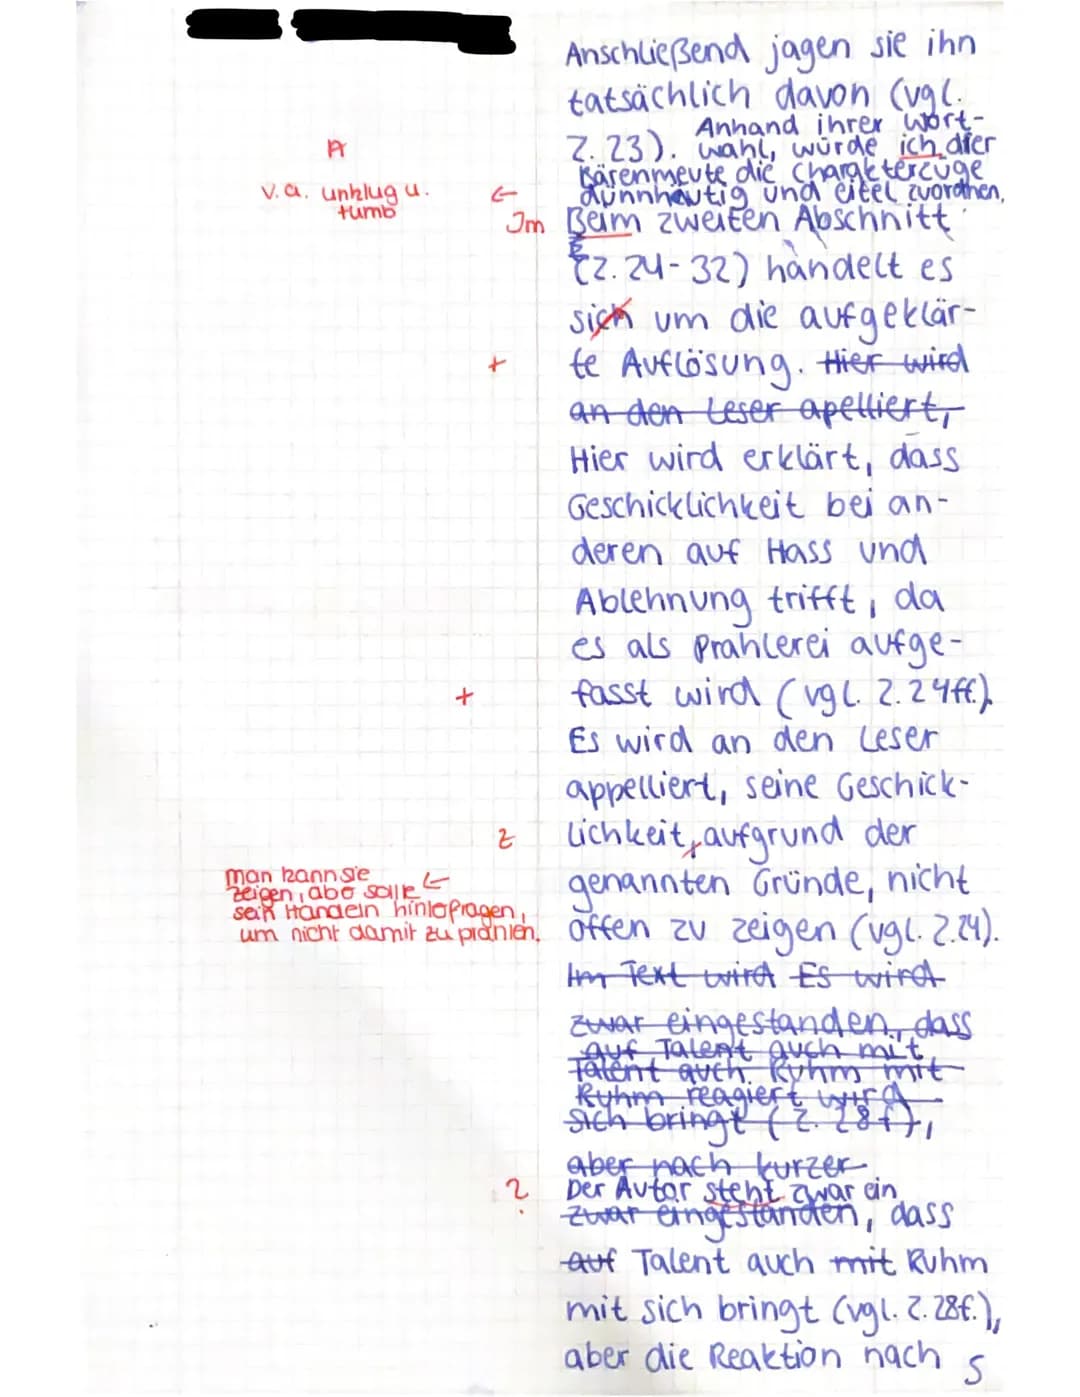 Anschließend jagen sie ihn
tatsächlich davon (vgl.
Z. 23). Anhand ihrer Wort-
wahl, würde ich der
Bärenmeute die Charakterzüge
dünnhäutig und eitel zuordnen.
A
v.a. unklug u.
tumb
Im Beim zweiten Abschnitt
(Z. 24-32) handelt es
sich um die aufgeklär-
+ te Auflösung. Hier wird
an den Leser apelliert,
Hier wird erklärt, dass
Geschicklichkeit bei an-
deren auf Hass und
Ablehnung trifft, da
es als Prahlerei aufge-
+ fasst wird (vgl. Z. 24ff.).
Es wird an den Leser
appelliert, seine Geschick-
Z lichkeit, aufgrund der
genannten Gründe, nicht
offen zu zeigen (vgl. Z.24).
man kann sie
zeigen, abe solle
sein Handeln hinterfragen,
um nicht damit zu prahlen.
Im Text wird Es wird
zwar eingestanden, dass
auf Talent auch mit
Talent auch Ruhm mit
Ruhm reagiert wird
sich bringt (Z. 28f),
aber nach kurzer
? Der Autor steht zwar ein
zwar eingestanden, dass
auf Talent auch mit Ruhm
mit sich bringt (vgl. Z. 28f.),
aber die Reaktion nach
5